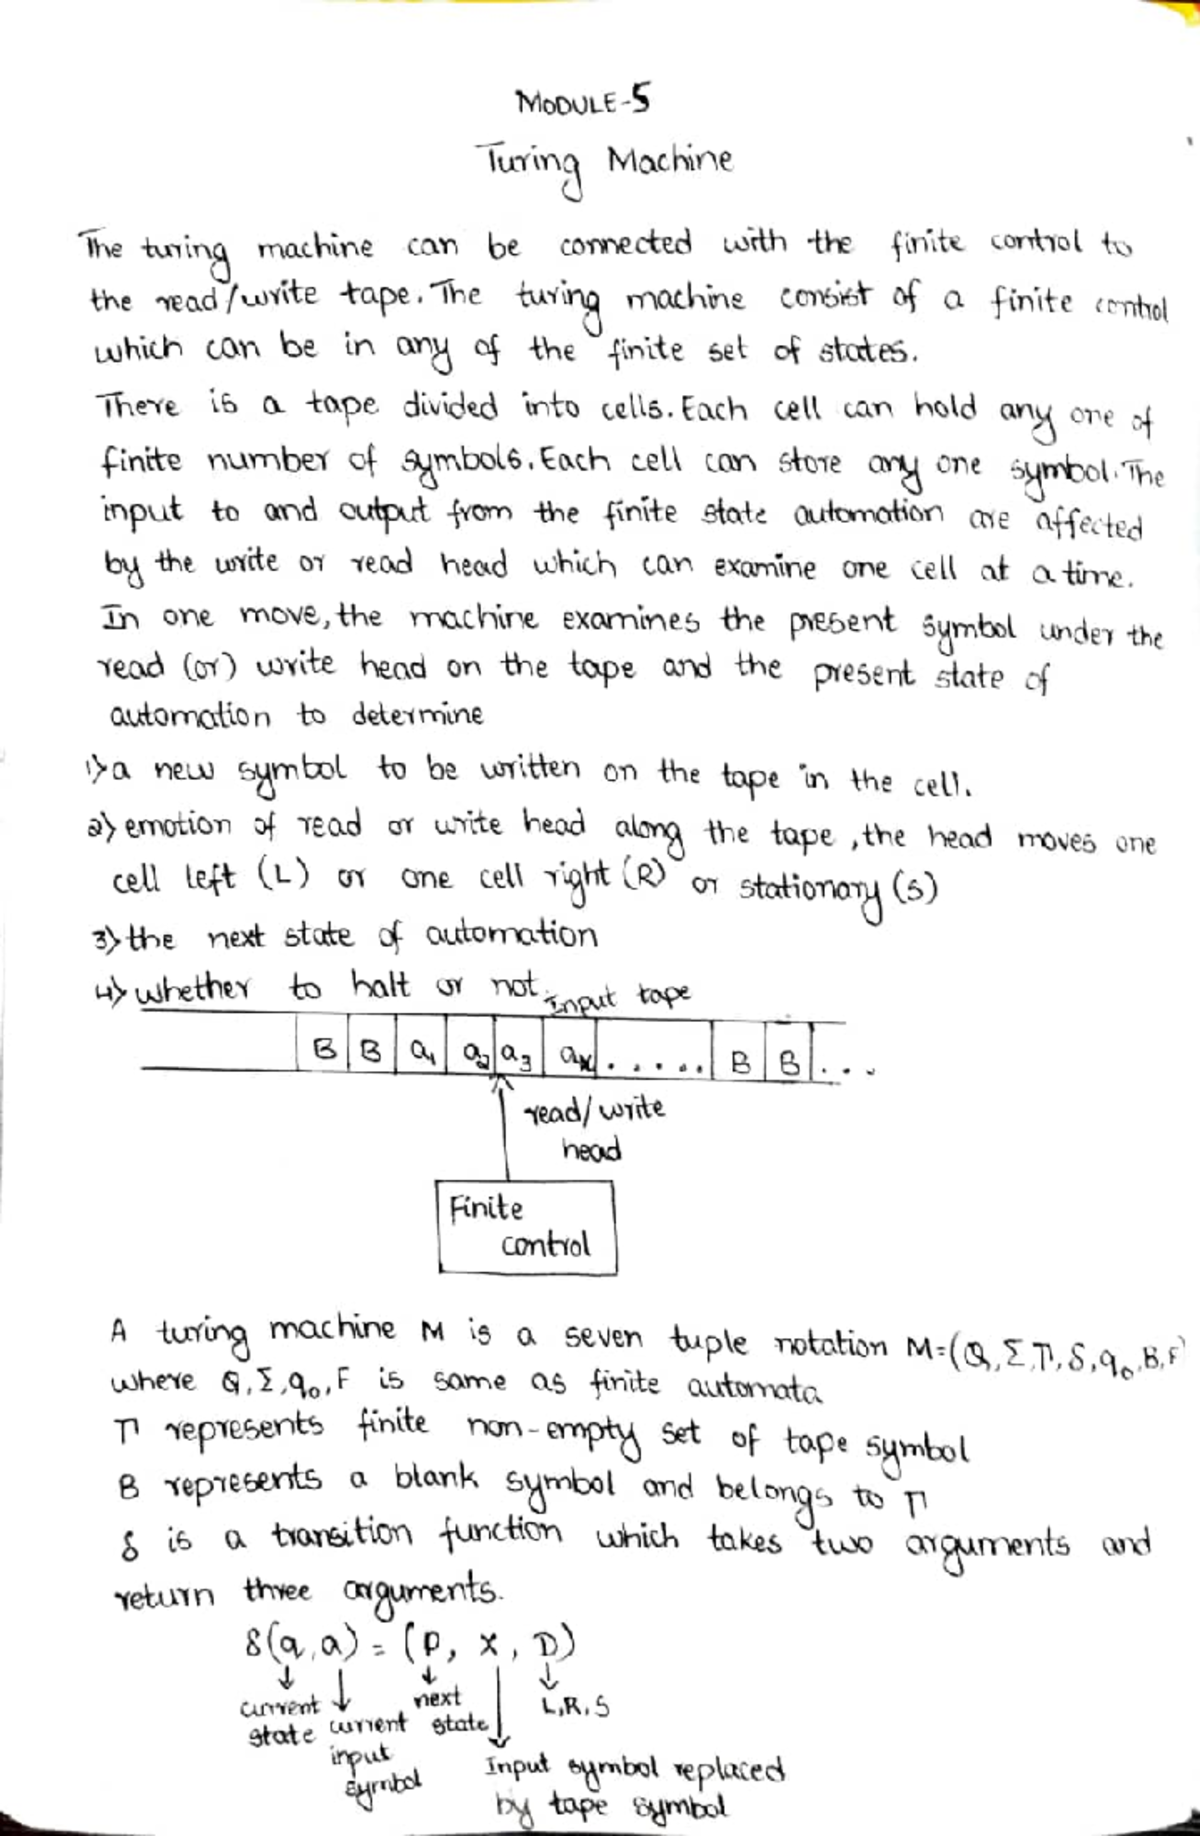 MODULE-5
Turing Machine
The turing machine can be connected with the finite control to
the read/write tape. The turing machine consist of a finite control
which can be in any of the finite set of states.
There is a tape divided into cells. Each cell can hold any one of
finite number of symbols. Each cell can store any one symbol. The
input to and output from the finite state automation are affected
by the write or read head which can examine one cell at a time.
In one move, the machine examines the present symbol under the
read (or) write head on the tape and the present state of
automation to determine
1) a new symbol to be written on the tape in the cell.
2) emotion of read or write head along the tape, the head moves one
cell left (L) or one cell right (R) or stationary (S)
3) the next state of automation
4) whether to halt or not.
Input tape
B B a1 a2 a3 ..... B B ...
read/write
head
Finite
control
A turing machine M is a seven tuple notation M=(Q,Σ,Π,δ,q0,B,F)
where Q,Σ,q0,F is same as finite automata
Π represents finite non-empty set of tape symbol
B represents a blank symbol and belongs to Π
δ is a transition function which takes two arguments and
return three arguments.
δ(q,a) = (P, X, D)
current state
current input symbol
next state
L,R,S
Input symbol replaced
by tape symbol